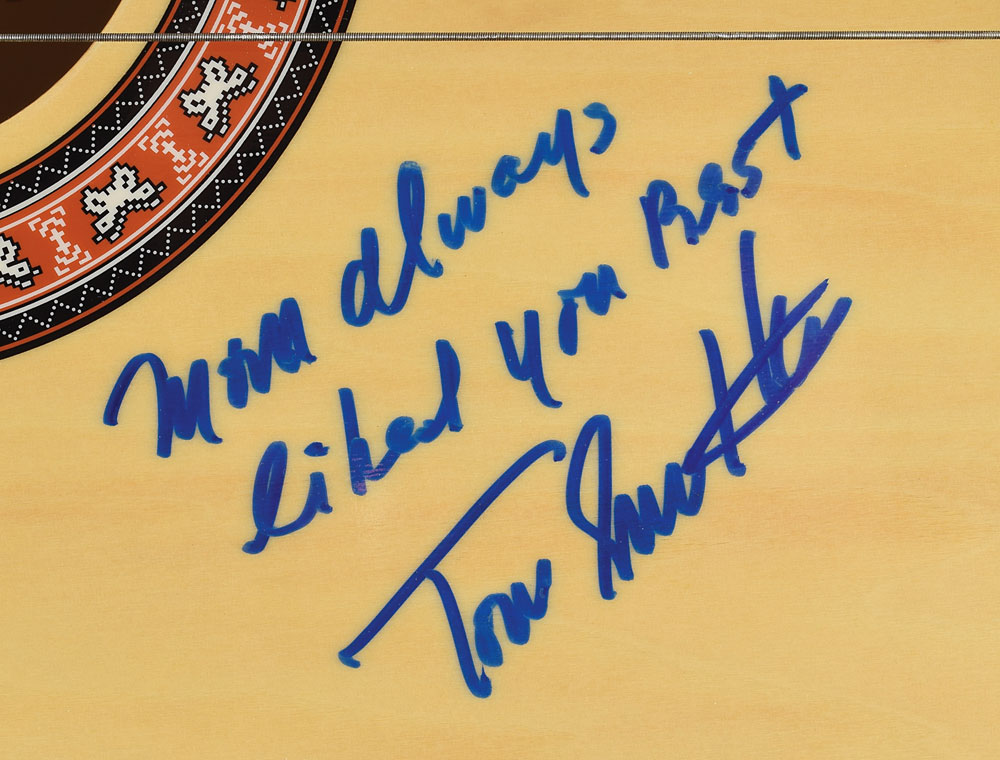 Mom always
liked you Best
Tom Smothers